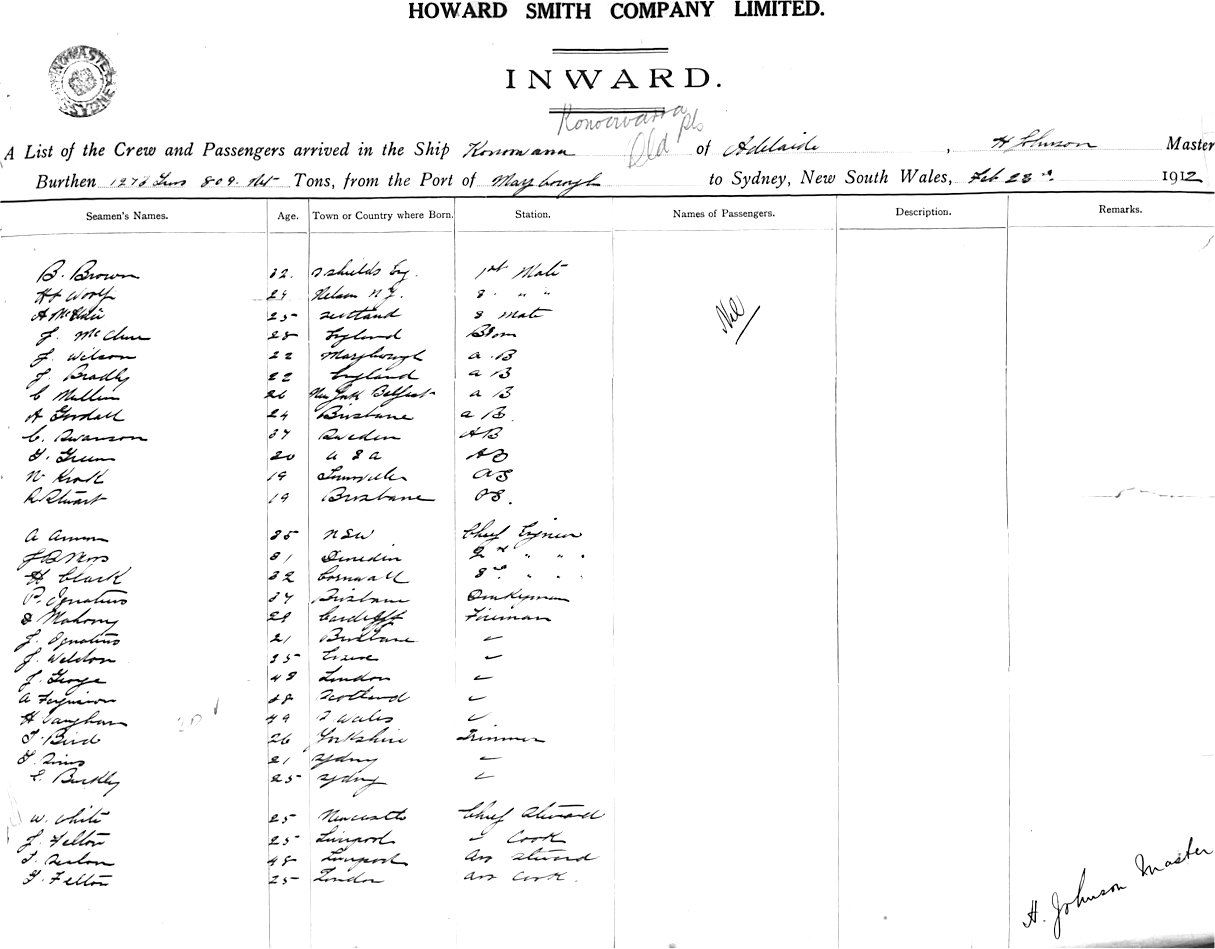 HOWARD SMITH COMPANY LIMITED.
INWARD.
Konoowarra
Old pls
A List of the Crew and Passengers arrived in the Ship Konowarra of Adelaide, H Johnson Master
Burthen 1273 Tons 809 Net Tons, from the Port of Maryborough to Sydney, New South Wales, Feb 23rd 1912
Seamen's Names. Age. Town or Country where Born. Station. Names of Passengers. Description. Remarks.
B. Brown 32. S Shields Eng. 1st Mate
H Woolf 29 Nelson N Z. 2 " "
A 25 Scotland 3 Mate
Nil
J. McClure 28 England Bsm
J. Wilson 22 Maryborough a.B
J. Bradly 22 England a B
C Mullin 26 New York Belfast a B
A Goodall 24 Brisbane a B.
C. Swanson 37 Sweden AB
T. Green 20 U S A AB
N 19 Townsville OS
R Stuart 19 Brisbane OS.
A 35 NSW Chief Engineer
31 Dunedin 2nd " " .
H Clark 32 Cornwall 3rd. " . .
P. Ignatius 37 Brisbane Donkeyman
D Mahony 29 Cardiff Fireman
J. Ignatius 21 Brisbane "
J. Weldon 35 "
J. George 48 London "
A Ferguson 38 Scotland "
H Vaughan 49 S Wales "
T. Bird 26 Yorkshire Trimmer
T. Sims 21 Sydney "
E. Buckly 25 Sydney "
W. White 25 Newcastle Chief Steward
J. Felton 25 Liverpool " Cook
T. 48 Liverpool Ass Steward
T. Felton 25 London Ass Cook.
H. Johnson Master